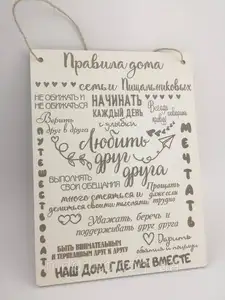 Правила дома
семьи Пищальниковых
НЕ ОБИЖАТЬ И
НЕ ОБИЖАТЬСЯ
НАЧИНАТЬ
КАЖДЫЙ ДЕНЬ
с улыбки
Всегда говорить правду
Верить
друг в друга
ПУТЕШЕСТВОВАТЬ
Любить
друг
друга
МЕЧТАТЬ
ВЫПОЛНЯТЬ
СВОИ ОБЕЩАНИЯ
Прощать
даже если
трудно
много смеяться и
делиться своими мыслями
Уважать, беречь и
поддерживать друг друга
БЫТЬ ВНИМАТЕЛЬНЫМ
И ТЕРПЕЛИВЫМ ДРУГ К ДРУГУ
Дарить
объятия и поцелуи
НАШ ДОМ, ГДЕ МЫ ВМЕСТЕ